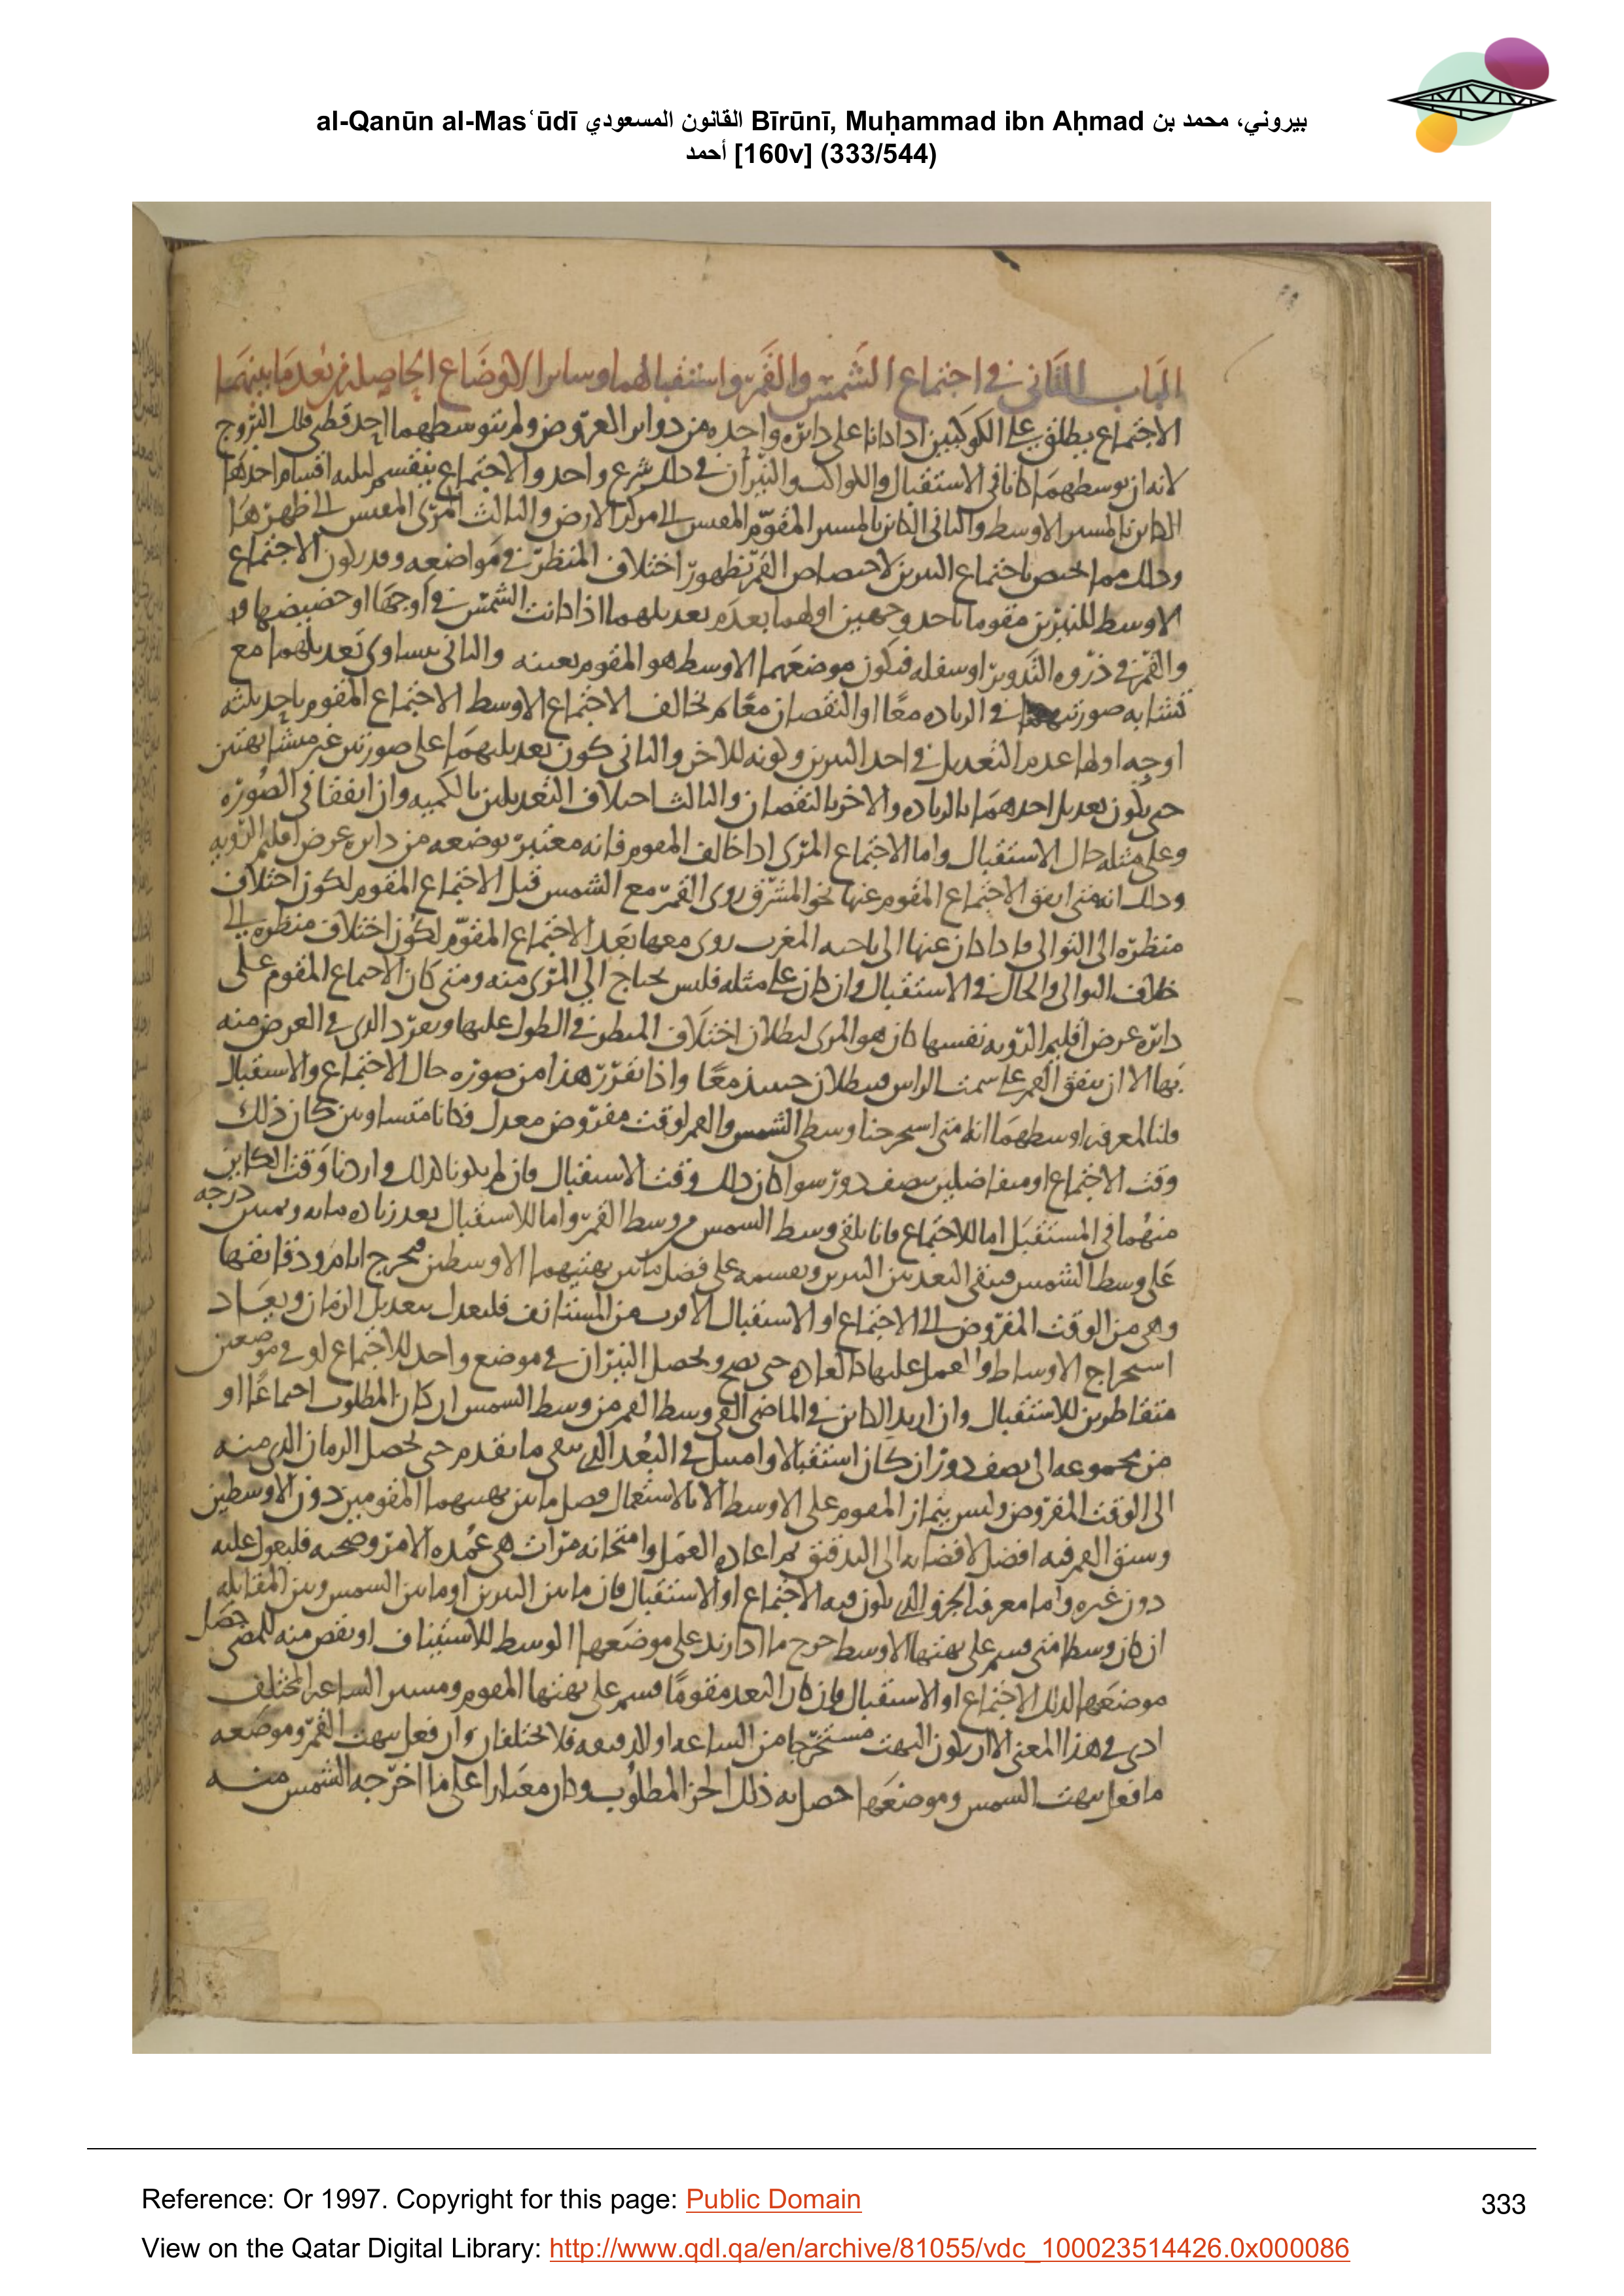 al-Qanūn al-Masʿūdī القانون المسعودي Bīrūnī, Muḥammad ibn Aḥmad بيروني، محمد بن
أحمد [160v] (333/544)
الباب الثاني في اجتماع الشمس والقمر واستقبالهما وسائر الاوضاع الحاصلة من بعد ما بينهما
الاجتماع يطلق على الكوكبين اذا كانا على دائره واحده من دوائر العروض ولم يتوسطهما احد قطبي فلك البروج
لانه ان توسطهما كانا في الاستقبال والكواكب والنيران في ذلك شرع واحد والاجتماع ينقسم لثلثه اقسام احدها
الكائن بالمسير الاوسط والثاني الكائن بالمسير المقوم المقيس الى مركز الارض والثالث المرئي المقيس الى ظهرها
وذلك مما يختص باجتماع النيرين لاختصاص القمر بظهور اختلاف المنظر في مواضعه وقد يكون الاجتماع
الاوسط للنيرين مقوما باحد وجهين اولهما بعدم تعديلهما اذا كانت الشمس في اوجها او حضيضها
والقمر في ذروه التدوير او سفله فيكون موضعهما الاوسط هو المقوم بعينه والثاني بتساوي تعديلهما مع
تشابه صورتيهما في الزياده معًا او النقصان معًا ثم يخالف الاجتماع الاوسط الاجتماع المقوم باحد ثلثه
اوجه اولها عدم التعديل في احد النيرين وكونه للاخر والثاني كون تعديليهما على صورتين غير متشابهتين
حتى يكون تعديل احدهما بالزياده والاخر بالنقصان والثالث اختلاف التعديلين بالكميه وان اتفقا في الصوره
وعلى مثله حال الاستقبال واما الاجتماع المرئي اذا خالف المقوم فانه معتبر بوضعه من دائره عرض اقليم الرويه
وذلك انه متى اتفق الاجتماع المقوم عنها نحو المشرق روي القمر مع الشمس قبل الاجتماع المقوم لكون اختلاف
منظره الى التوالي واذا كان عنها الى ناحيه المغرب روي معها بعد الاجتماع المقوم لكون اختلاف منظره الى
خلاف التوالي والحال في الاستقبال وان كان على مثله فليس يحتاج الى المرئي منه ومتى كان الاجتماع المقوم على
دائره عرض اقليم الرويه نفسها كان هو المرئي لبطلان اختلاف المنظر في الطول عليها وتفرد الذي في العرض منه
بها الا ان يتفق القمر على سمت الراس فيبطلان حينئذ معًا واذا تقرر هذا من صوره حال الاجتماع والاستقبال
قلنا لمعرفه اوسطهما انا متى استخرجنا وسطي الشمس والقمر لوقت مفروض معدل فكانا متساويين كان ذلك
وقت الاجتماع او متفاضلين بنصف دور سوا كان ذلك وقت الاستقبال فان لم يكونا كذلك واردنا وقت الكائن
منهما في المستقبل اما للاجتماع فانا نلقي وسط الشمس من وسط القمر واما للاستقبال بعد زياده مائه وثمنين درجه
على وسط الشمس فيبقى البعد بين النيرين ونقسمه على فضل ما بين بهتيهما الاوسطين فيخرج ايام ودقائقها
وهي من الوقت المفروض الى الاجتماع او الاستقبال الاقرب من المستانف فليعدل بتعديل الزمان ويعاد
استخراج الاوساط والعمل عليها كالعاده حتى يصح ويحصل النيران في موضع واحد للاجتماع او في موضعين
متقاطرين للاستقبال وان اريد الكائن في الماضي القي وسط القمر من وسط الشمس ان كان المطلوب اجتماعًا او
من مجموعه الى نصف دور ان كان استقبالا وامتثل في البعد الذي يبقى ما تقدم حتى يحصل الزمان الذي منه
الى الوقت المفروض وليس يتماز المقوم على الاوسط الا بالاستعمال فضل ما بين بهتيهما المقومين دون الاوسطين
وسبق القمر فيه افضل لافضائه الى التدقيق ثم اعاده العمل وامتحانه مرات هي عمده الامر وصحته فليعول عليه
دون غيره واما معرفه الجزو الذي يكون فيه الاجتماع او الاستقبال فان ما بين النيرين او ما بين الشمس وبين المقابله
ان كان وسطا متى قسم على بهتها الاوسط خرج ما اذا زيد على موضعها الوسط للاستيناف او نقص منه للمضي حصل
موضعها لذلك الاجتماع او الاستقبال وان كان البعد مقومًا قسم على بهتها المقوم ومسير الساعه المختلف
ادق في هذا المعنى الا ان يكون البهت مستخرجا من الساعه او الدقيقه فلا يختلفان وان فعل ببهت القمر وموضعه
ما فعل ببهت الشمس وموضعها حصل به ذلك الجز المطلوب وكان معيارا على ما اخرجه الشمس منه
Reference: Or 1997. Copyright for this page: Public Domain
333
View on the Qatar Digital Library: http://www.qdl.qa/en/archive/81055/vdc_100023514426.0x000086